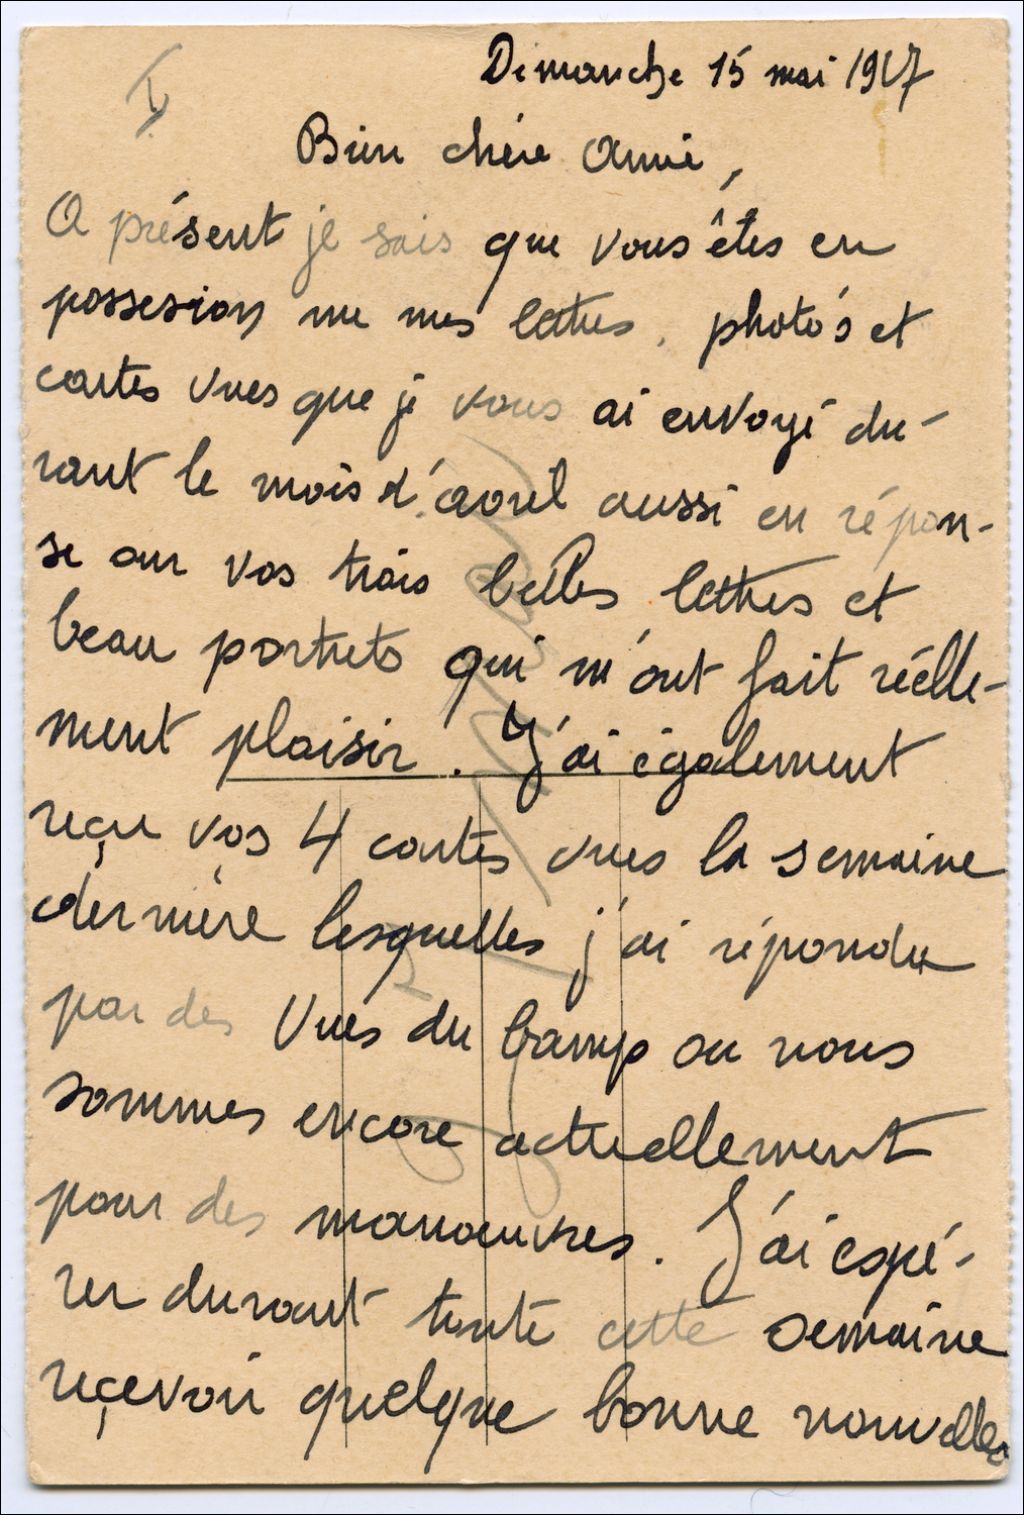 I
Dimanche 15 mai 1917
Bien chère Annie,
A présent je sais que vous êtes en
possesion me mes lettres, photo's et
cartes vues que je vous ai envoyé du-
rant le mois d'avril aussi en répon-
se our vos trois belles lettres et
beau portrets qui m'ont fait réelle-
ment plaisir. J'ai également
reçu vos 4 cartes vues la semaine
dernière lesquelles j'ai répondu
par des vues du camp ou nous
sommes encore actuellement
pour des manœuvres. J'ai espé-
rer durant toute cette semaine
reçevoir quelque bonne nouvelles